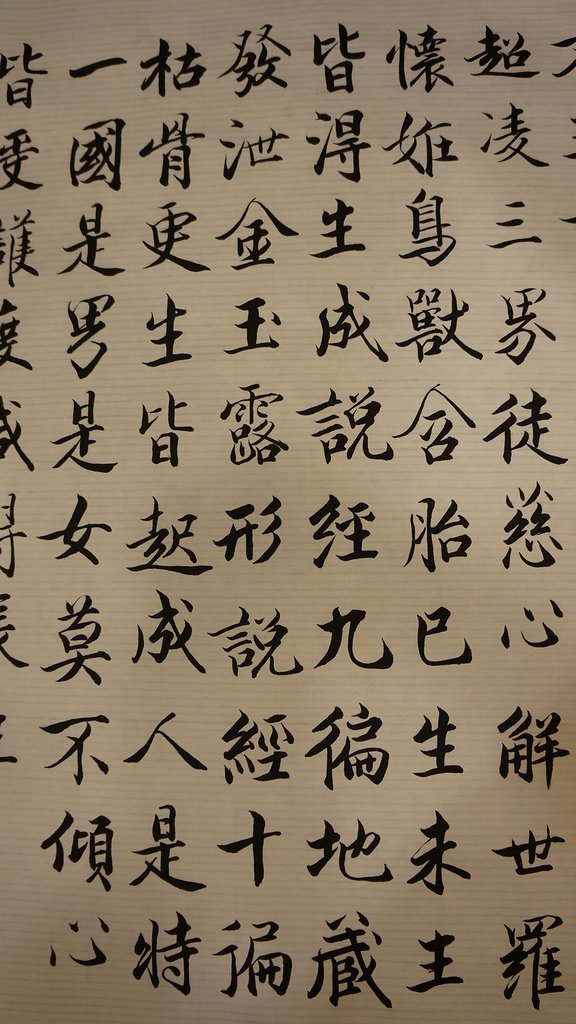 超凌三界徒慈心解世羅
懷妊鳥獸含胎已生未主
皆淂生成說經九徧地藏
發泄金玉露形說經十徧
枯骨更生皆起成人是特
一國是男是女莫不傾心
皆受護度咸得長